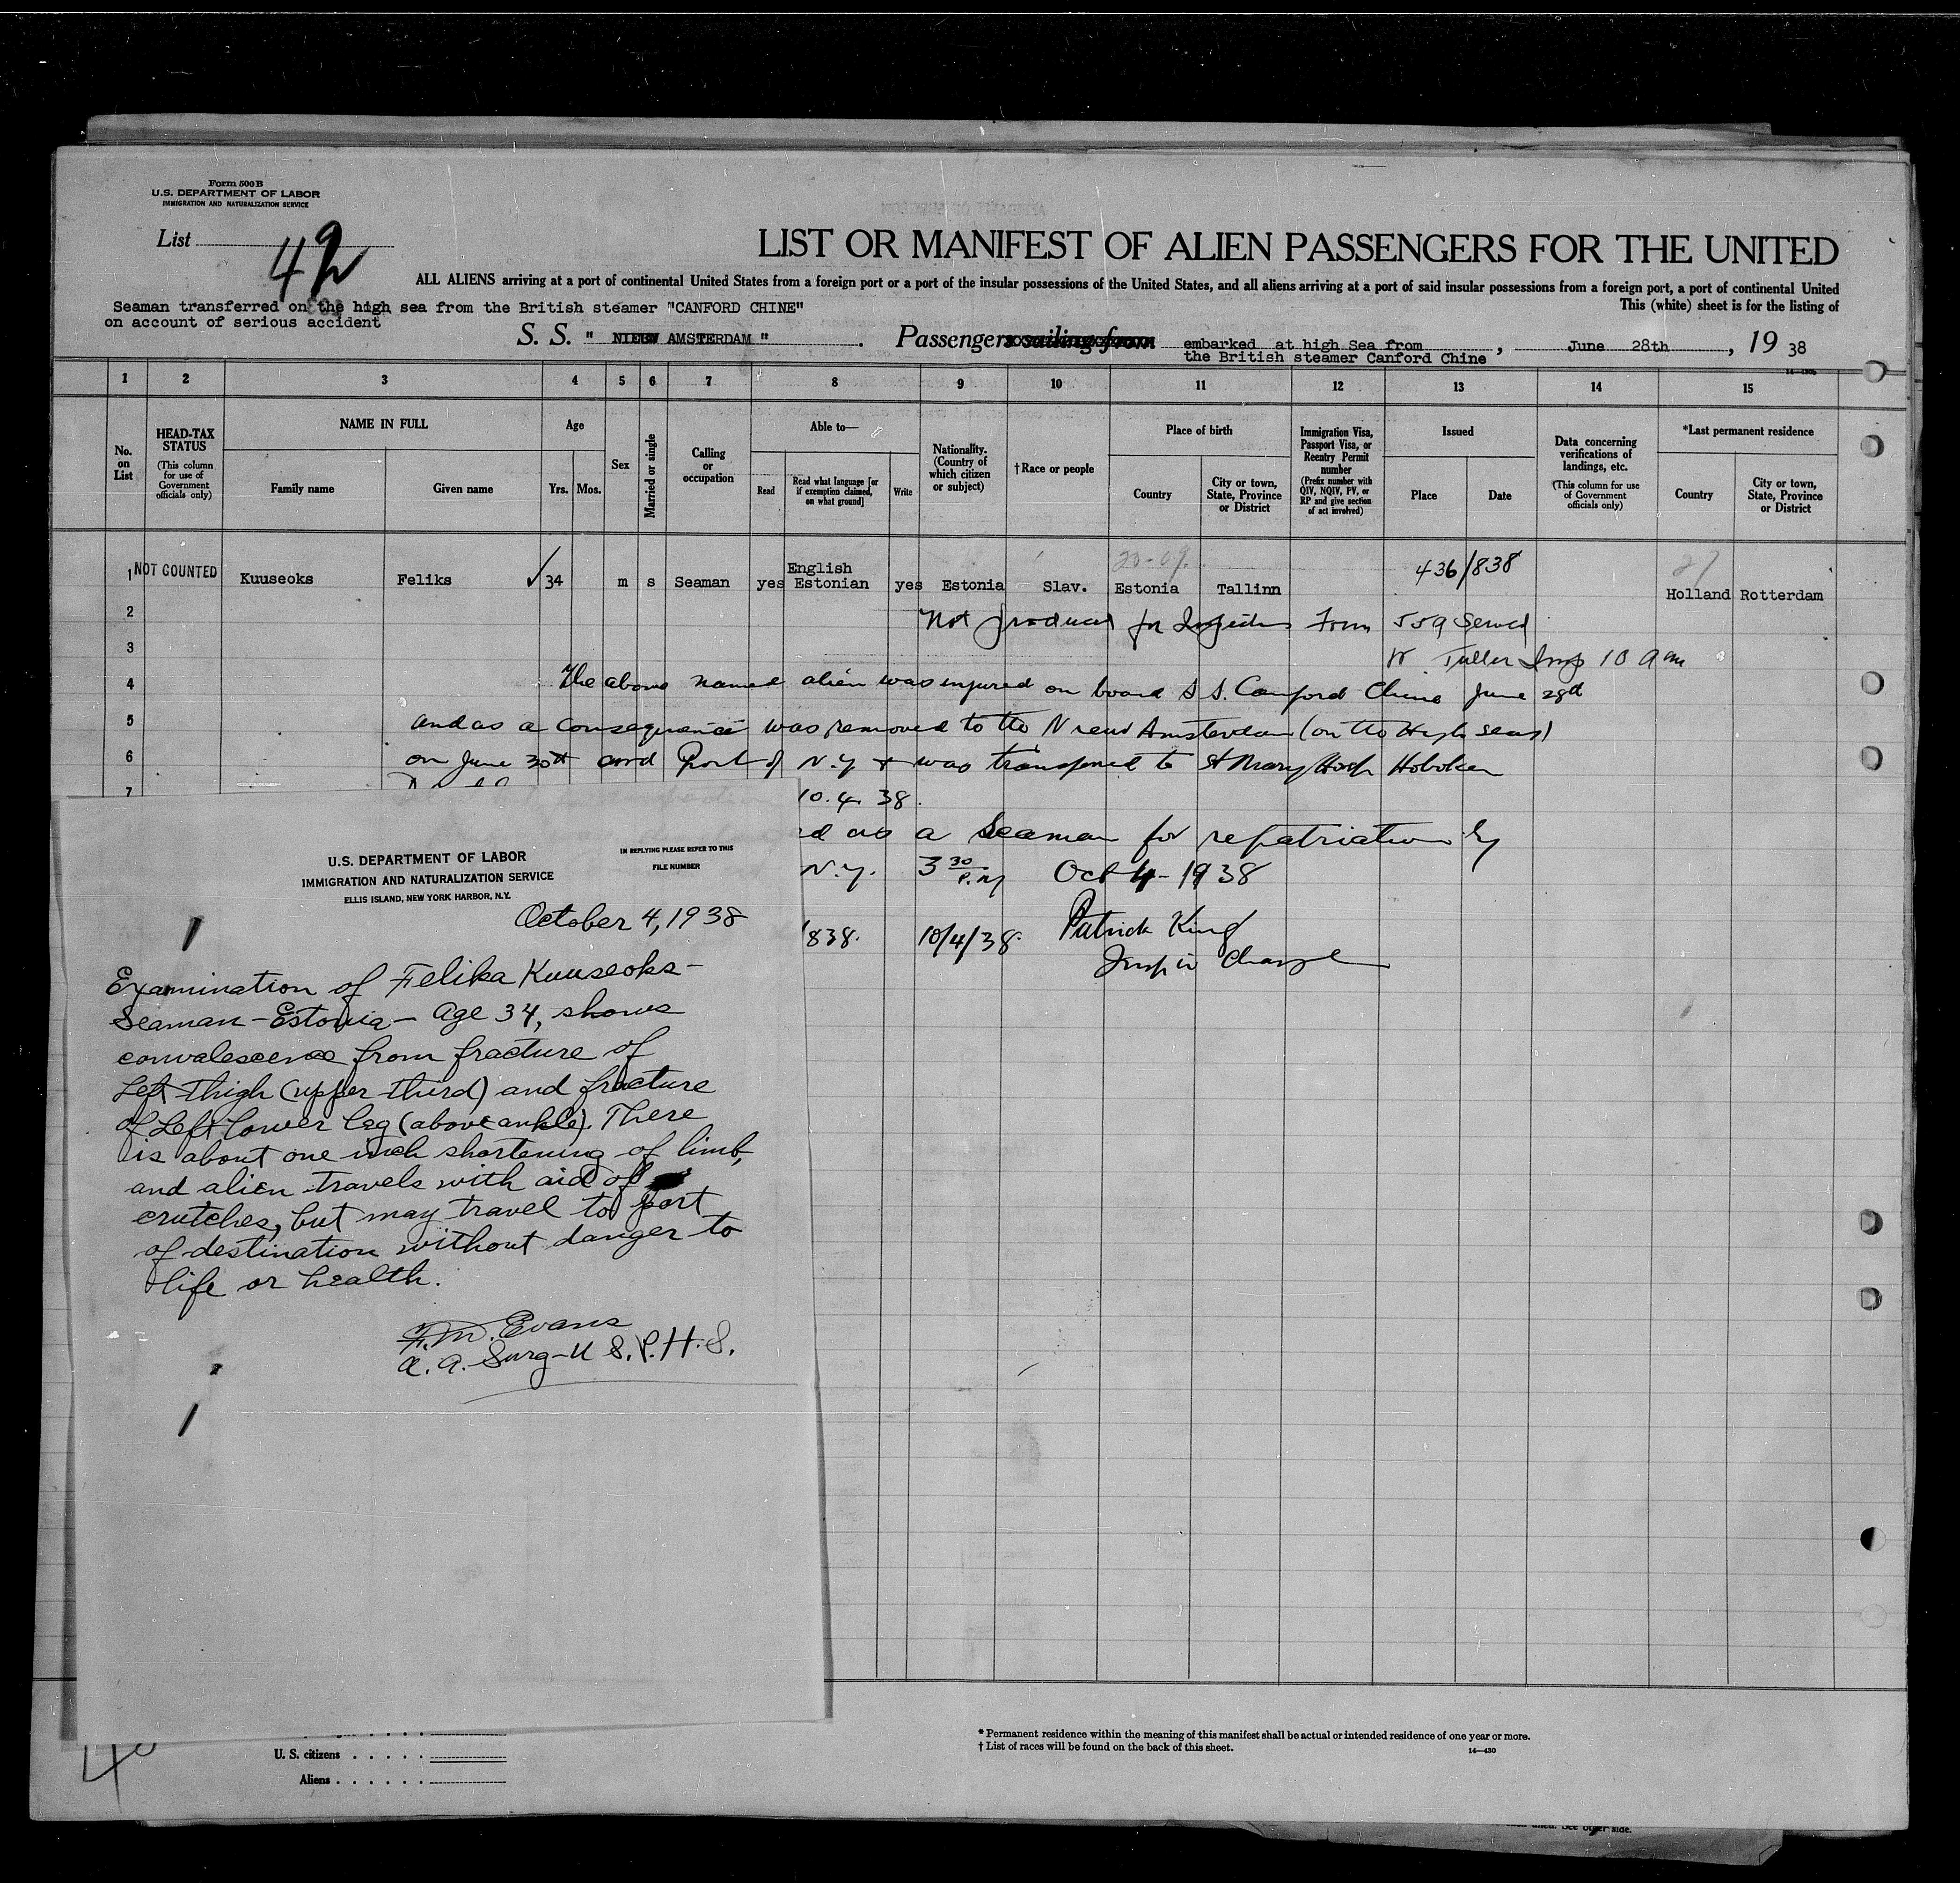 Form 500 B
U.S. DEPARTMENT OF LABOR
IMMIGRATION AND NATURALIZATION SERVICE
List
42
LIST OR MANIFEST OF ALIEN PASSENGERS FOR THE UNITED
ALL ALIENS arriving at a port of continental United States from a foreign port or a port of the insular possessions of the United States, and all aliens arriving at a port of said insular possessions from a foreign port, a port of continental United
Seaman transferred on the high sea from the British steamer "CANFORD CHINE"
This (white) sheet is for the listing of
on account of serious accident
S. S. " NIEUW AMSTERDAM " . Passengers sailing from embarked at high Sea from , June 28th , 19 38
the British steamer Canford Chine
1 2 3 4 5 6 7 8 9 10 11 12 13 14 15
No. on List
HEAD-TAX STATUS
(This column for use of Government officials only)
NAME IN FULL
Family name
Given name
Age
Yrs. Mos.
Sex
Married or single
Calling or occupation
Able to—
Read
Read what language [or if exemption claimed, on what ground]
Write
Nationality. (Country of which citizen or subject)
†Race or people
Place of birth
Country
City or town, State, Province or District
Immigration Visa, Passport Visa, or Reentry Permit number
(Prefix number with QIV, NQIV, PV, or RP and give section of act involved)
Issued
Place
Date
Data concerning verifications of landings, etc.
(This column for use of Government officials only)
*Last permanent residence
Country
City or town, State, Province or District
436/838
1 NOT COUNTED Kuuseoks Feliks ✓ 34 m s Seaman yes English Estonian yes Estonia Slav. Estonia Tallinn Holland Rotterdam
2 Not produced for Inspection Form 559 Served
3 Tuller Insp 10 am
4 The above named alien was injured on board S S. Canford Chine June 28th
5 and as a consequence was removed to the Nieuw Amsterdam (on the High seas)
6 on June 30th and Port of N.Y & was transferred to St Mary Hosp Hoboken
7
10. 4. 38.
ed as a Seaman for repatriation by
N.Y. 3 30 P.M Oct 4 - 1938
838. 10/4/38. Patrick King
Insp in Charge
U.S. DEPARTMENT OF LABOR
IMMIGRATION AND NATURALIZATION SERVICE
ELLIS ISLAND, NEW YORK HARBOR, N.Y.
IN REPLYING PLEASE REFER TO THIS
FILE NUMBER
October 4, 1938
Examination of Felika Kuuseoks—
Seaman—Estonia—Age 34, shows
convalescence from fracture of
Left thigh (upper third) and fracture
of Left lower leg (above ankle). There
is about one inch shortening of limb,
and alien travels with aid of
crutches, but may travel to port
of destination without danger to
life or health.
F.M. Evans
A. A. Surg—U S. P. H. S.
U. S. citizens
Aliens
* Permanent residence within the meaning of this manifest shall be actual or intended residence of one year or more.
† List of races will be found on the back of this sheet.
14—430
See other side.